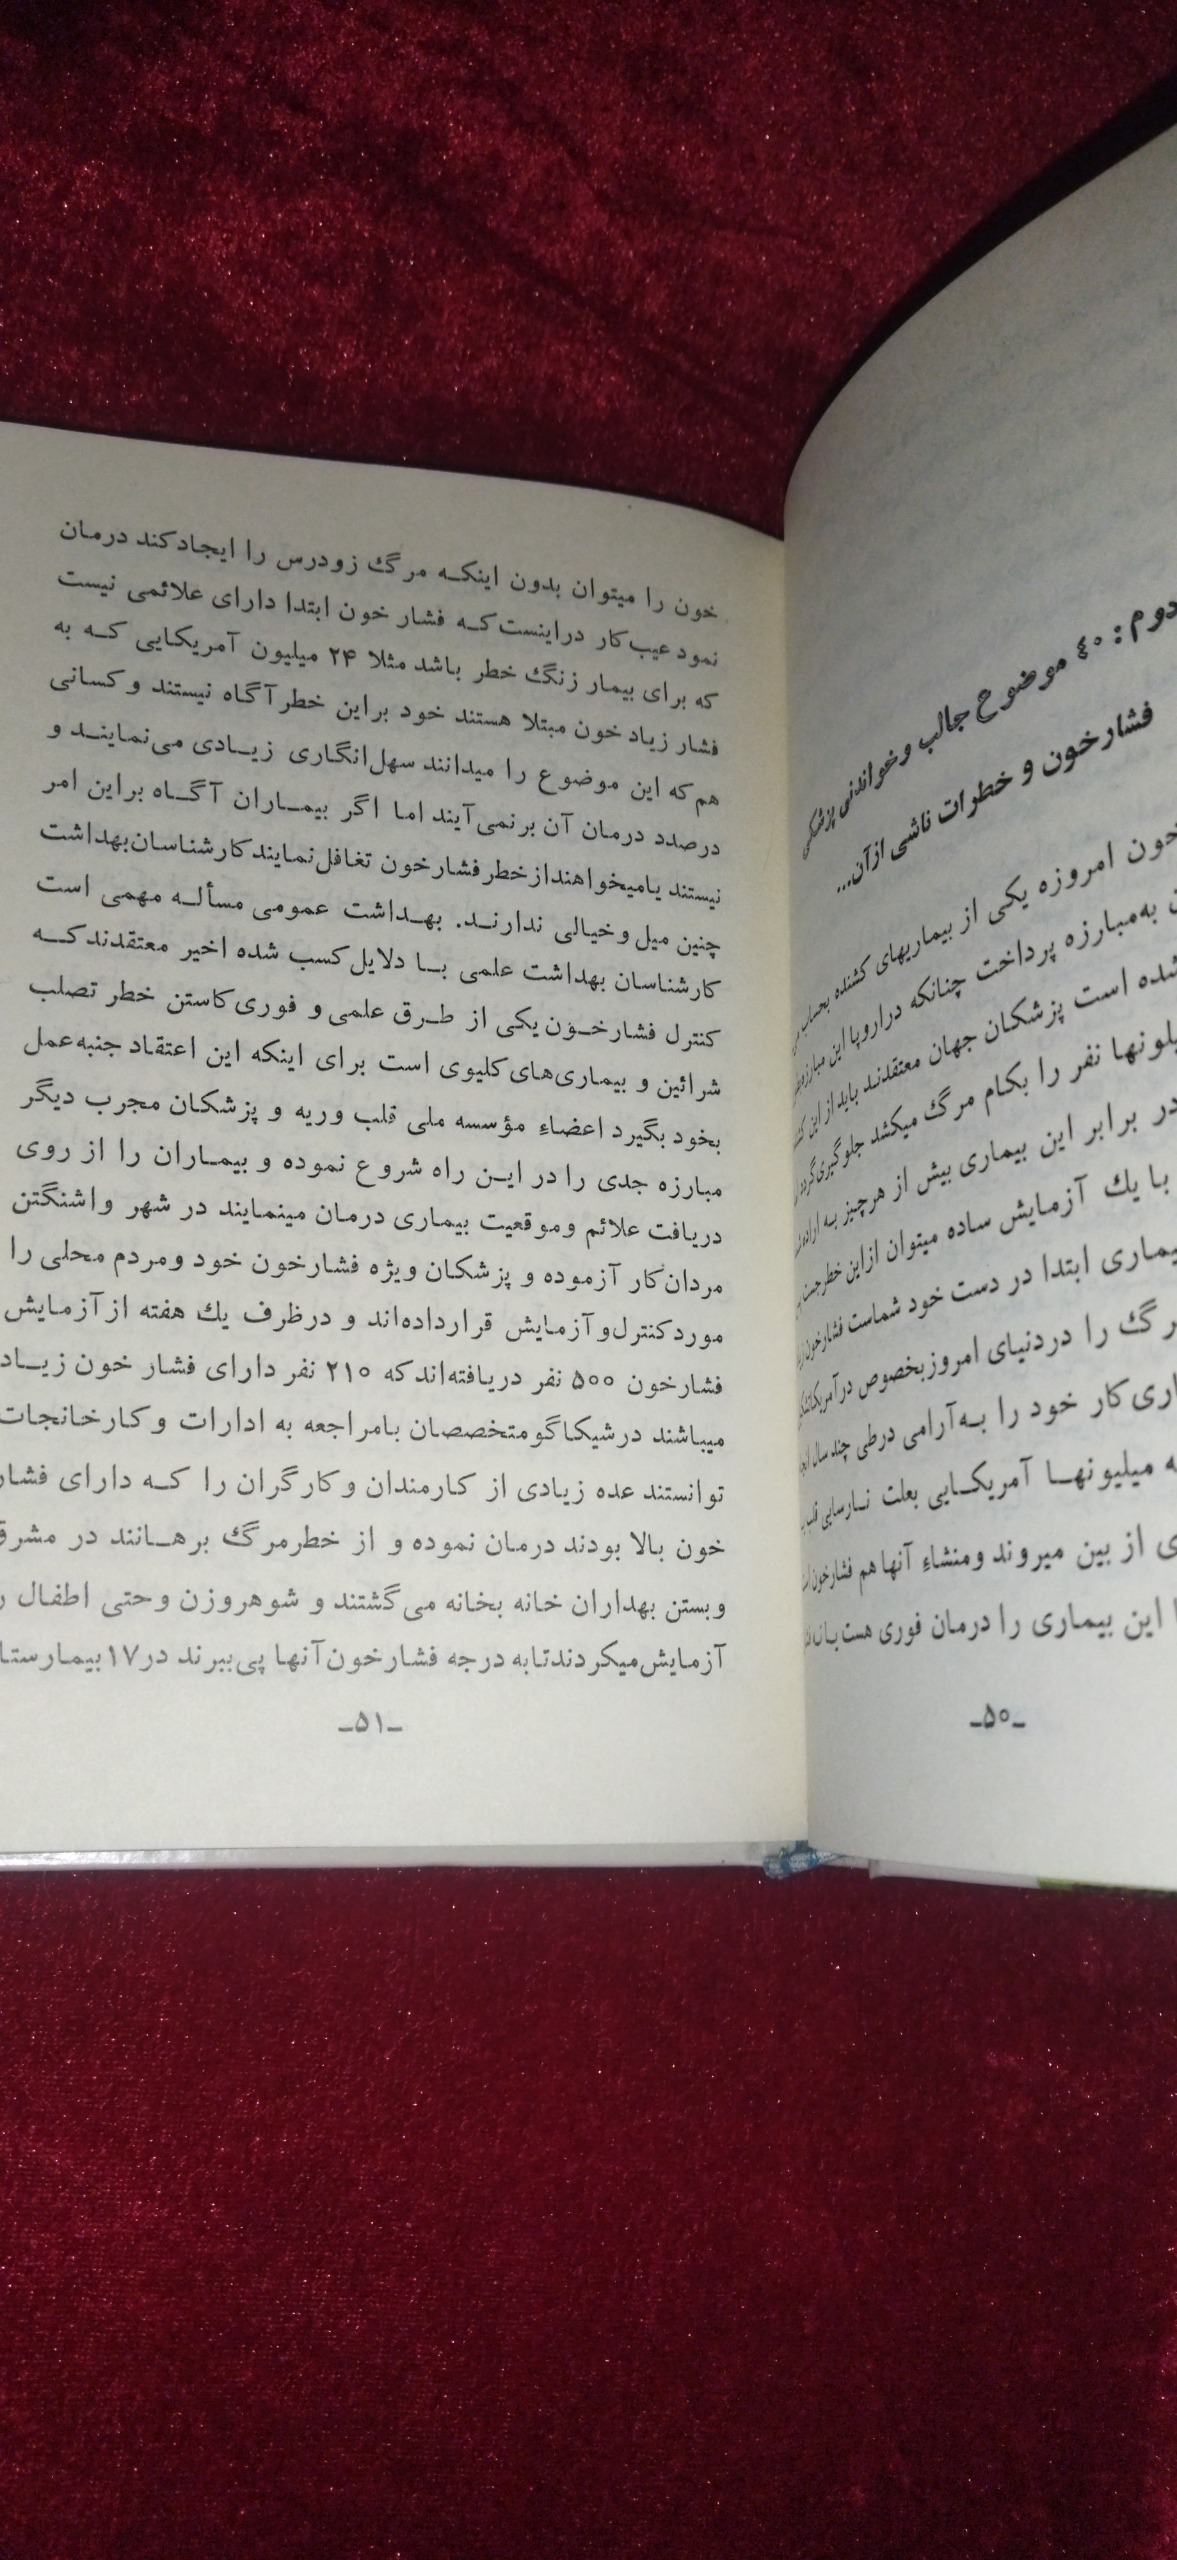 دوم : ۴۰ موضوع جالب وخواندنی پزشکی
فشارخون و خطرات ناشی ازآن...
خون امروزه یکی از بیماریهای کشنده بحساب
به‌مبارزه پرداخت چنانکه دراروپا این مبارزه
شده است پزشکان جهان معتقدند باید از این
نفر را بکام مرگ میکشد جلوگیری‌گردد
در برابر این بیماری بیش از هرچیز به اراده
با یك آزمایش ساده میتوان ازاین خطرجست
ابتدا در دست خود شماست فشارخون
را دردنیای امروزبخصوص درآمریکا
کار خود را به‌آرامی درطی چند سال
میلیونها آمریکایی بعلت نارسایی قلب
از بین میروند ومنشاء آنها هم فشارخون
این بیماری را درمان فوری هست
ـ۵۰ـ
خون را میتوان بدون اینکه مرگ زودرس را ایجادکند درمان
نمود عیب‌کار دراینست‌که فشار خون ابتدا دارای علائمی نیست
که برای بیمار زنگ خطر باشد مثلا ۲۴ میلیون آمریکایی که به
فشار زیاد خون مبتلا هستند خود براین خطرآگاه نیستند و کسانی
هم‌که این موضوع را میدانند سهل‌انگاری زیادی می‌نمایند و
درصدد درمان آن برنمی‌آیند اما اگر بیماران آگاه براین امر
نیستند یامیخواهندازخطرفشارخون تغافل‌نمایندکارشناسان‌بهداشت
چنین میل و خیالی ندارند. بهداشت عمومی مسأله مهمی است
کارشناسان بهداشت علمی با دلایل‌کسب شده اخیر معتقدندکه
کنترل فشارخون‌یکی از طرق علمی و فوری‌کاستن خطر تصلب
شرائین و بیماری‌های‌کلیوی است برای اینکه این اعتقاد جنبه‌عمل
بخود بگیرد اعضاء مؤسسه ملی قلب وریه و پزشکان مجرب دیگر
مبارزه جدی را در این راه شروع نموده و بیماران را از روی
دریافت علائم وموقعیت بیماری درمان مینمایند در شهر واشنگتن
مردان‌کار آزموده و پزشکان ویژه فشارخون خود ومردم محلی را
موردکنترل‌وآزمایش قرارداده‌اند و درظرف یك هفته ازآزمایش
فشارخون ۵۰۰ نفر دریافته‌اندکه ۲۱۰ نفر دارای فشار خون زیاد
میباشند درشیکاگومتخصصان بامراجعه به ادارات وکارخانجات
توانستند عده زیادی از کارمندان وکارگران را که دارای فشار
خون بالا بودند درمان نموده و از خطرمرگ برهانند در مشرق
وبستن بهداران خانه بخانه می‌گشتند و شوهروزن وحتی اطفال
آزمایش‌میکردندتابه درجه فشارخون‌آنها پی‌ببرند در۱۷
ـ۵۱ـ